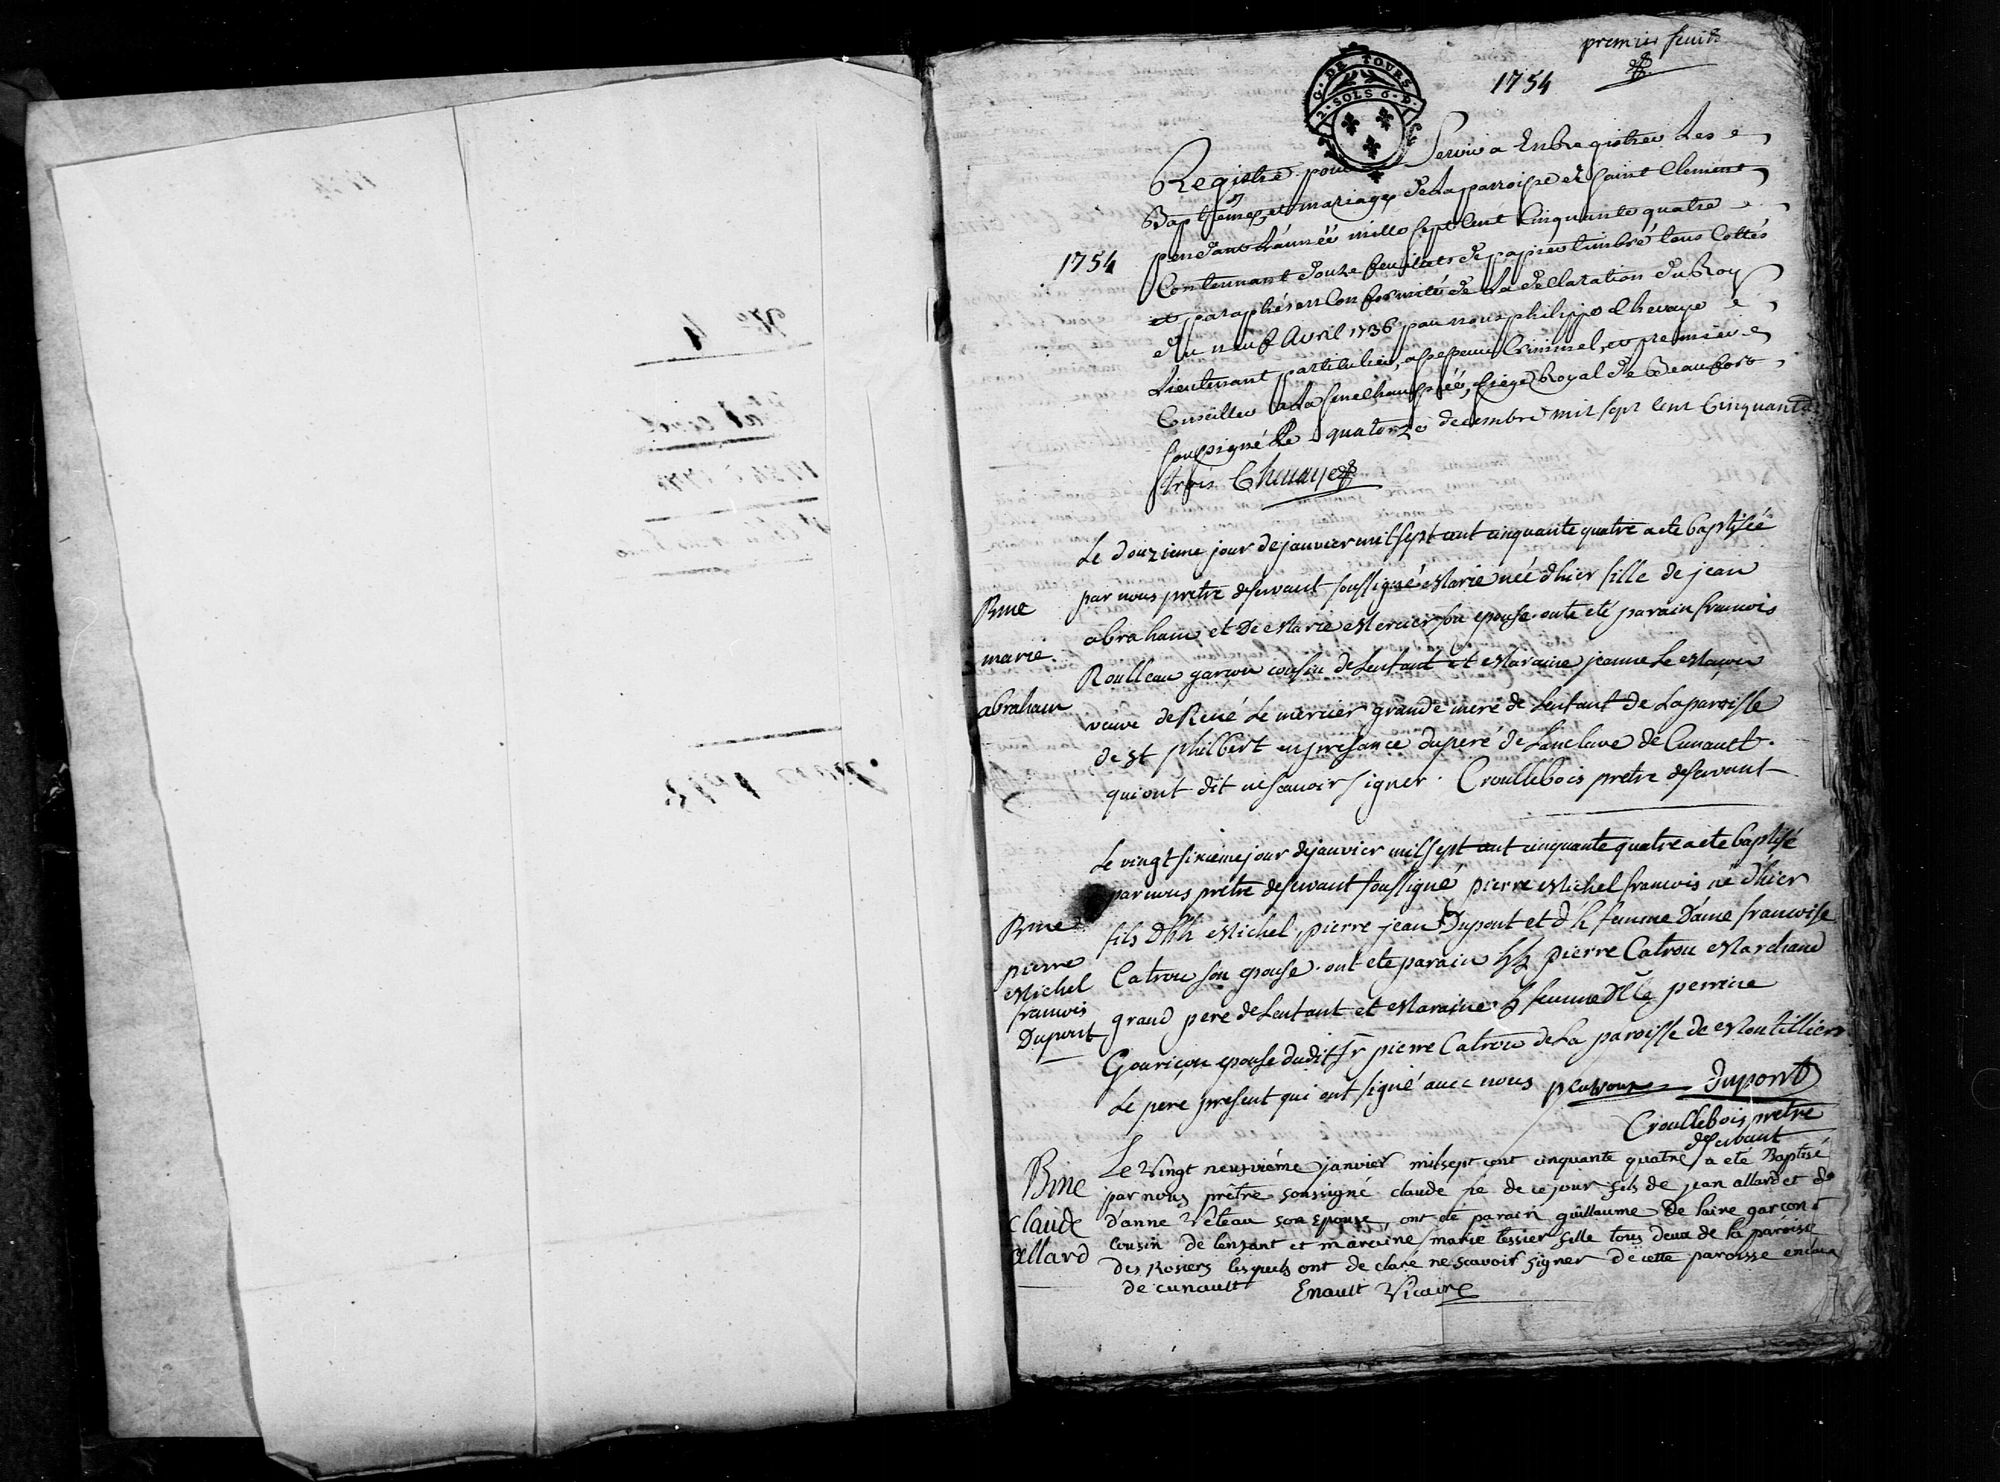 premier feuil
1754
G. DE TOURS
2. SOLS 6. D.
Registre pour Servir a Enregistrer Les
Baptêmes et mariages de La parroisse de Saint Clement
1754
pendant L'année mille sept Cent Cinquante quatre
Contennant douze feuillets de papier timbré tous Cottés
et paraphés en Conformité de La déclaration du Roy
du neuf Avril 1736 par nous philippe Chevaye
Lieutenant particulier, assesseur Criminel, et premier
Conseiller a La Senechaussée, Siege Royal de Beaufort
Soussigné Le quatorze decembre mil sept Cent Cinquante
trois Chevaye
Bme
marie
abraham
Le douzieme jour de janvier mil sept cent cinquante quatre a ete baptisée
par nous pretre deservant soussigné Marie née d'hier fille de jean
abraham et De Marie Mercier son epouse. ont eté parain francois
Roulleau garcon cousin de Lenfant et Maraine jeanne Le Macon
veuve de René Le mercier grande mere de Lenfant de La paroisse
de st philbert en presance du pere de Lanclave de Cunault.
qui ont dit ne scavoir signer. Croullebois pretre deservant
Bme
pierre
Michel
francois
Dupont
Le vingt sixieme jour de janvier mil sept cent cinquante quatre a ete baptisé
par nous pretre deservant soussigné pierre Michel francois né d'hier
fils d'hh Michel pierre jean Dupont et d'h femme Dame francoise
Catrou son epouse. ont ete parain hh pierre Catrou Marchand
grand pere de Lenfant et Maraine h femme Dlle perrine
Gouriçon epouse dudit Sr pierre Catrou de La paroisse de Montilliers
Le pere present qui ont signé avec nous pcatroux dupont
Croullebois pretre
deservant
Bme
claude
allard
Le vingt neufviéme janvier mil sept cent cinquante quatre a eté Baptisé
par nous prêtre soussigné claude né de ce jour fils de jean allard et de
d'anne Vêteau son Epouse, ont eté parain guillaume De laire garcon
cousin de lenfant et maraine marie tessier fille tous deux de la paroisse
des Rosiers lesquels ont de claré ne scavoir signer de cette paroisse enclave
de cunault Enault Vicaire